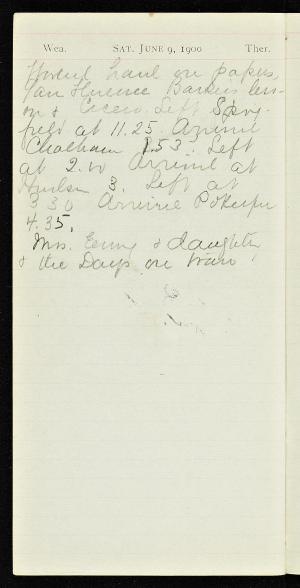 Wea. SAT. JUNE 9, 1900 Ther.
Worked hard on papers,
on Florence Barker's les-
son & Cicero. Left Spring-
field at 11.25. Arrived
Chatham 1.53. Left
at 2.00 Arrived at
Hudson 3. Left at
3 30 Arrived Po'keepsie
4.35.
Mrs. & daughter
& the Days on train